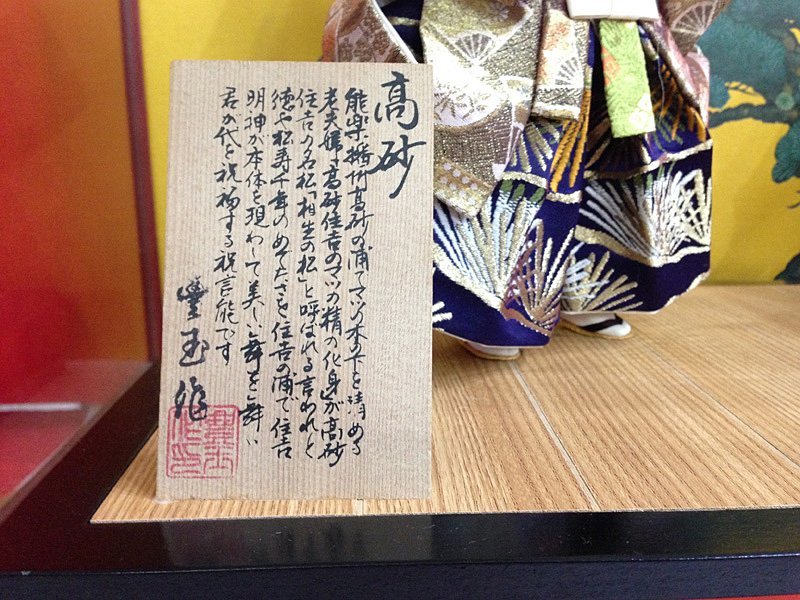 高砂
能楽播州高砂の浦でマツの木の下を清める
老夫婦、高砂住吉のマツの精の化身が高砂
住吉の名松「相生の松」と呼ばれる言われと
徳や松寿千年のめでたさを住吉の浦で住吉
明神が本体を現わして美しい舞を舞い
君が代を祝福する祝言能です
豊玉作